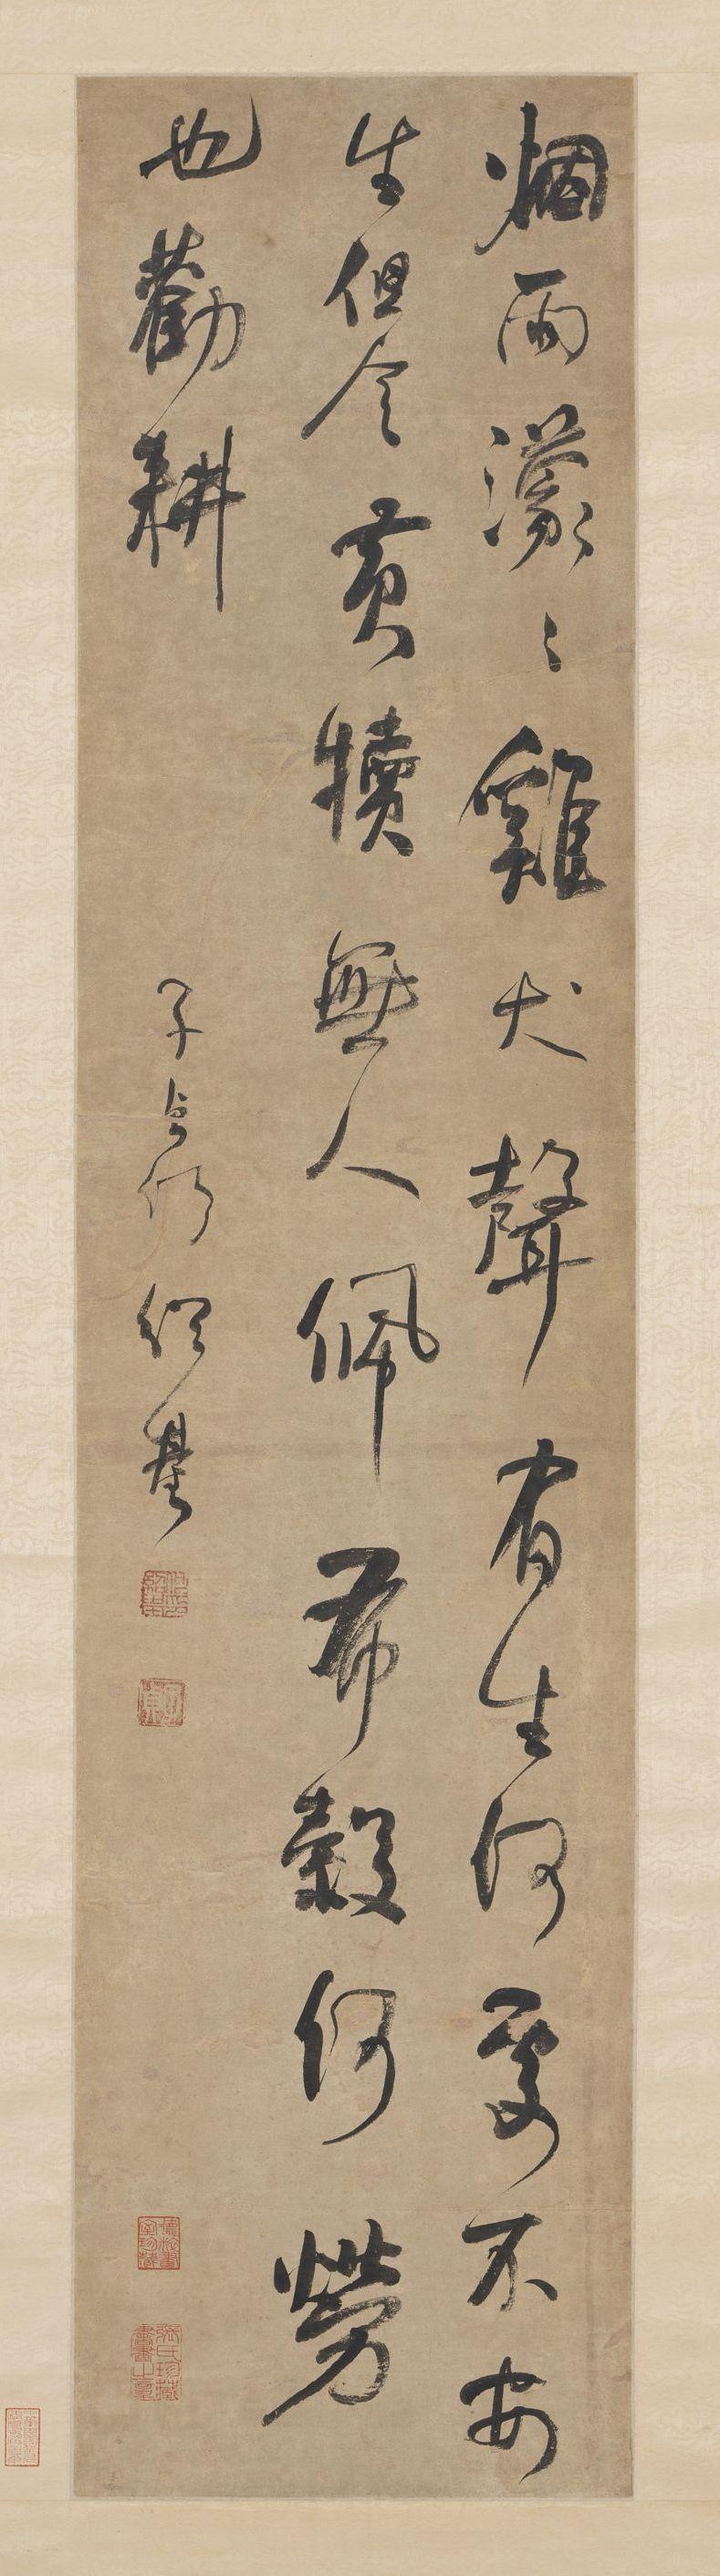 烟雨濛〻雞犬聲有生何處不安
生但令黃犢無人佩布穀何勞
也勸耕
子貞何紹基
子貞